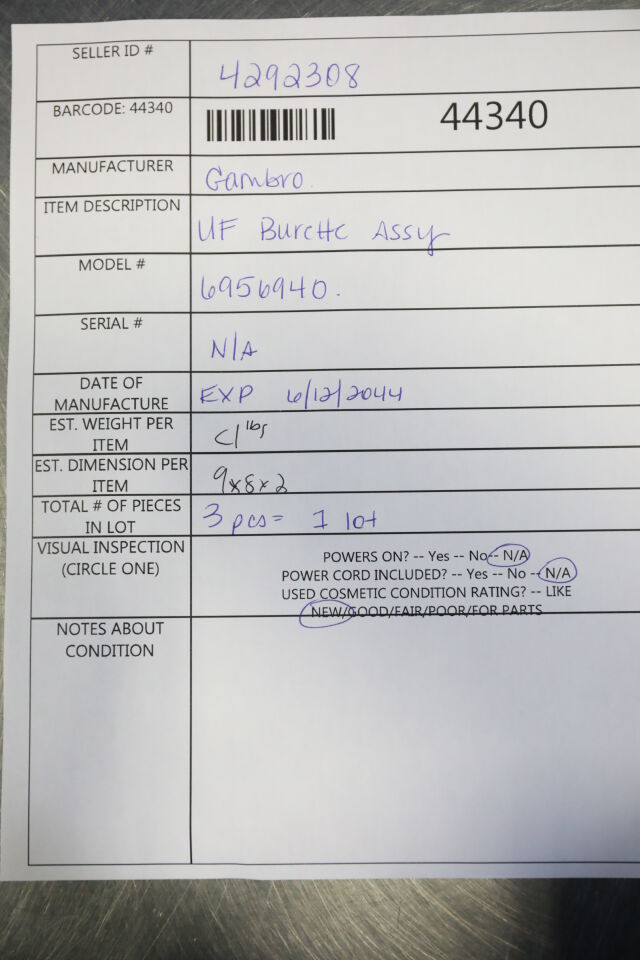 SELLER ID #
4292308
BARCODE: 44340
44340
MANUFACTURER
Gambro.
ITEM DESCRIPTION
UF Burette Assy
MODEL #
6956940.
SERIAL #
N/A
DATE OF
MANUFACTURE
EXP 6/12/2044
EST. WEIGHT PER
ITEM
<1 lbs
EST. DIMENSION PER
ITEM
9x8x2
TOTAL # OF PIECES
IN LOT
3 pcs = 1 lot
VISUAL INSPECTION
(CIRCLE ONE)
POWERS ON? -- Yes -- No-- N/A
POWER CORD INCLUDED? -- Yes -- No -- N/A
USED COSMETIC CONDITION RATING? -- LIKE
NEW/GOOD/FAIR/POOR/FOR PARTS
NOTES ABOUT
CONDITION